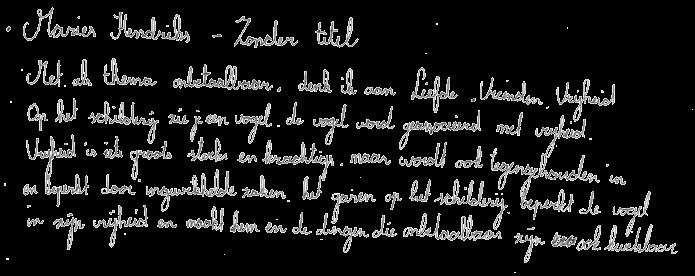 Maries Hendriks - Zonder titel
Met als thema onbetaalbaar, denk ik aan Liefde, Vrienden, Vrijheid
Op het schilderij zie je een vogel, de vogel word geassocieerd met vrijheid.
Vrijheid is iets groots sterks en krachtigs, maar wordt ook tegengehouden in
en beperkt door ingewikkelde zaken, het garen op het schilderij beperkt de vogel
in zijn vrijheid en maakt hem en de dingen die onbetaalbaar zijn ook kwetsbaar